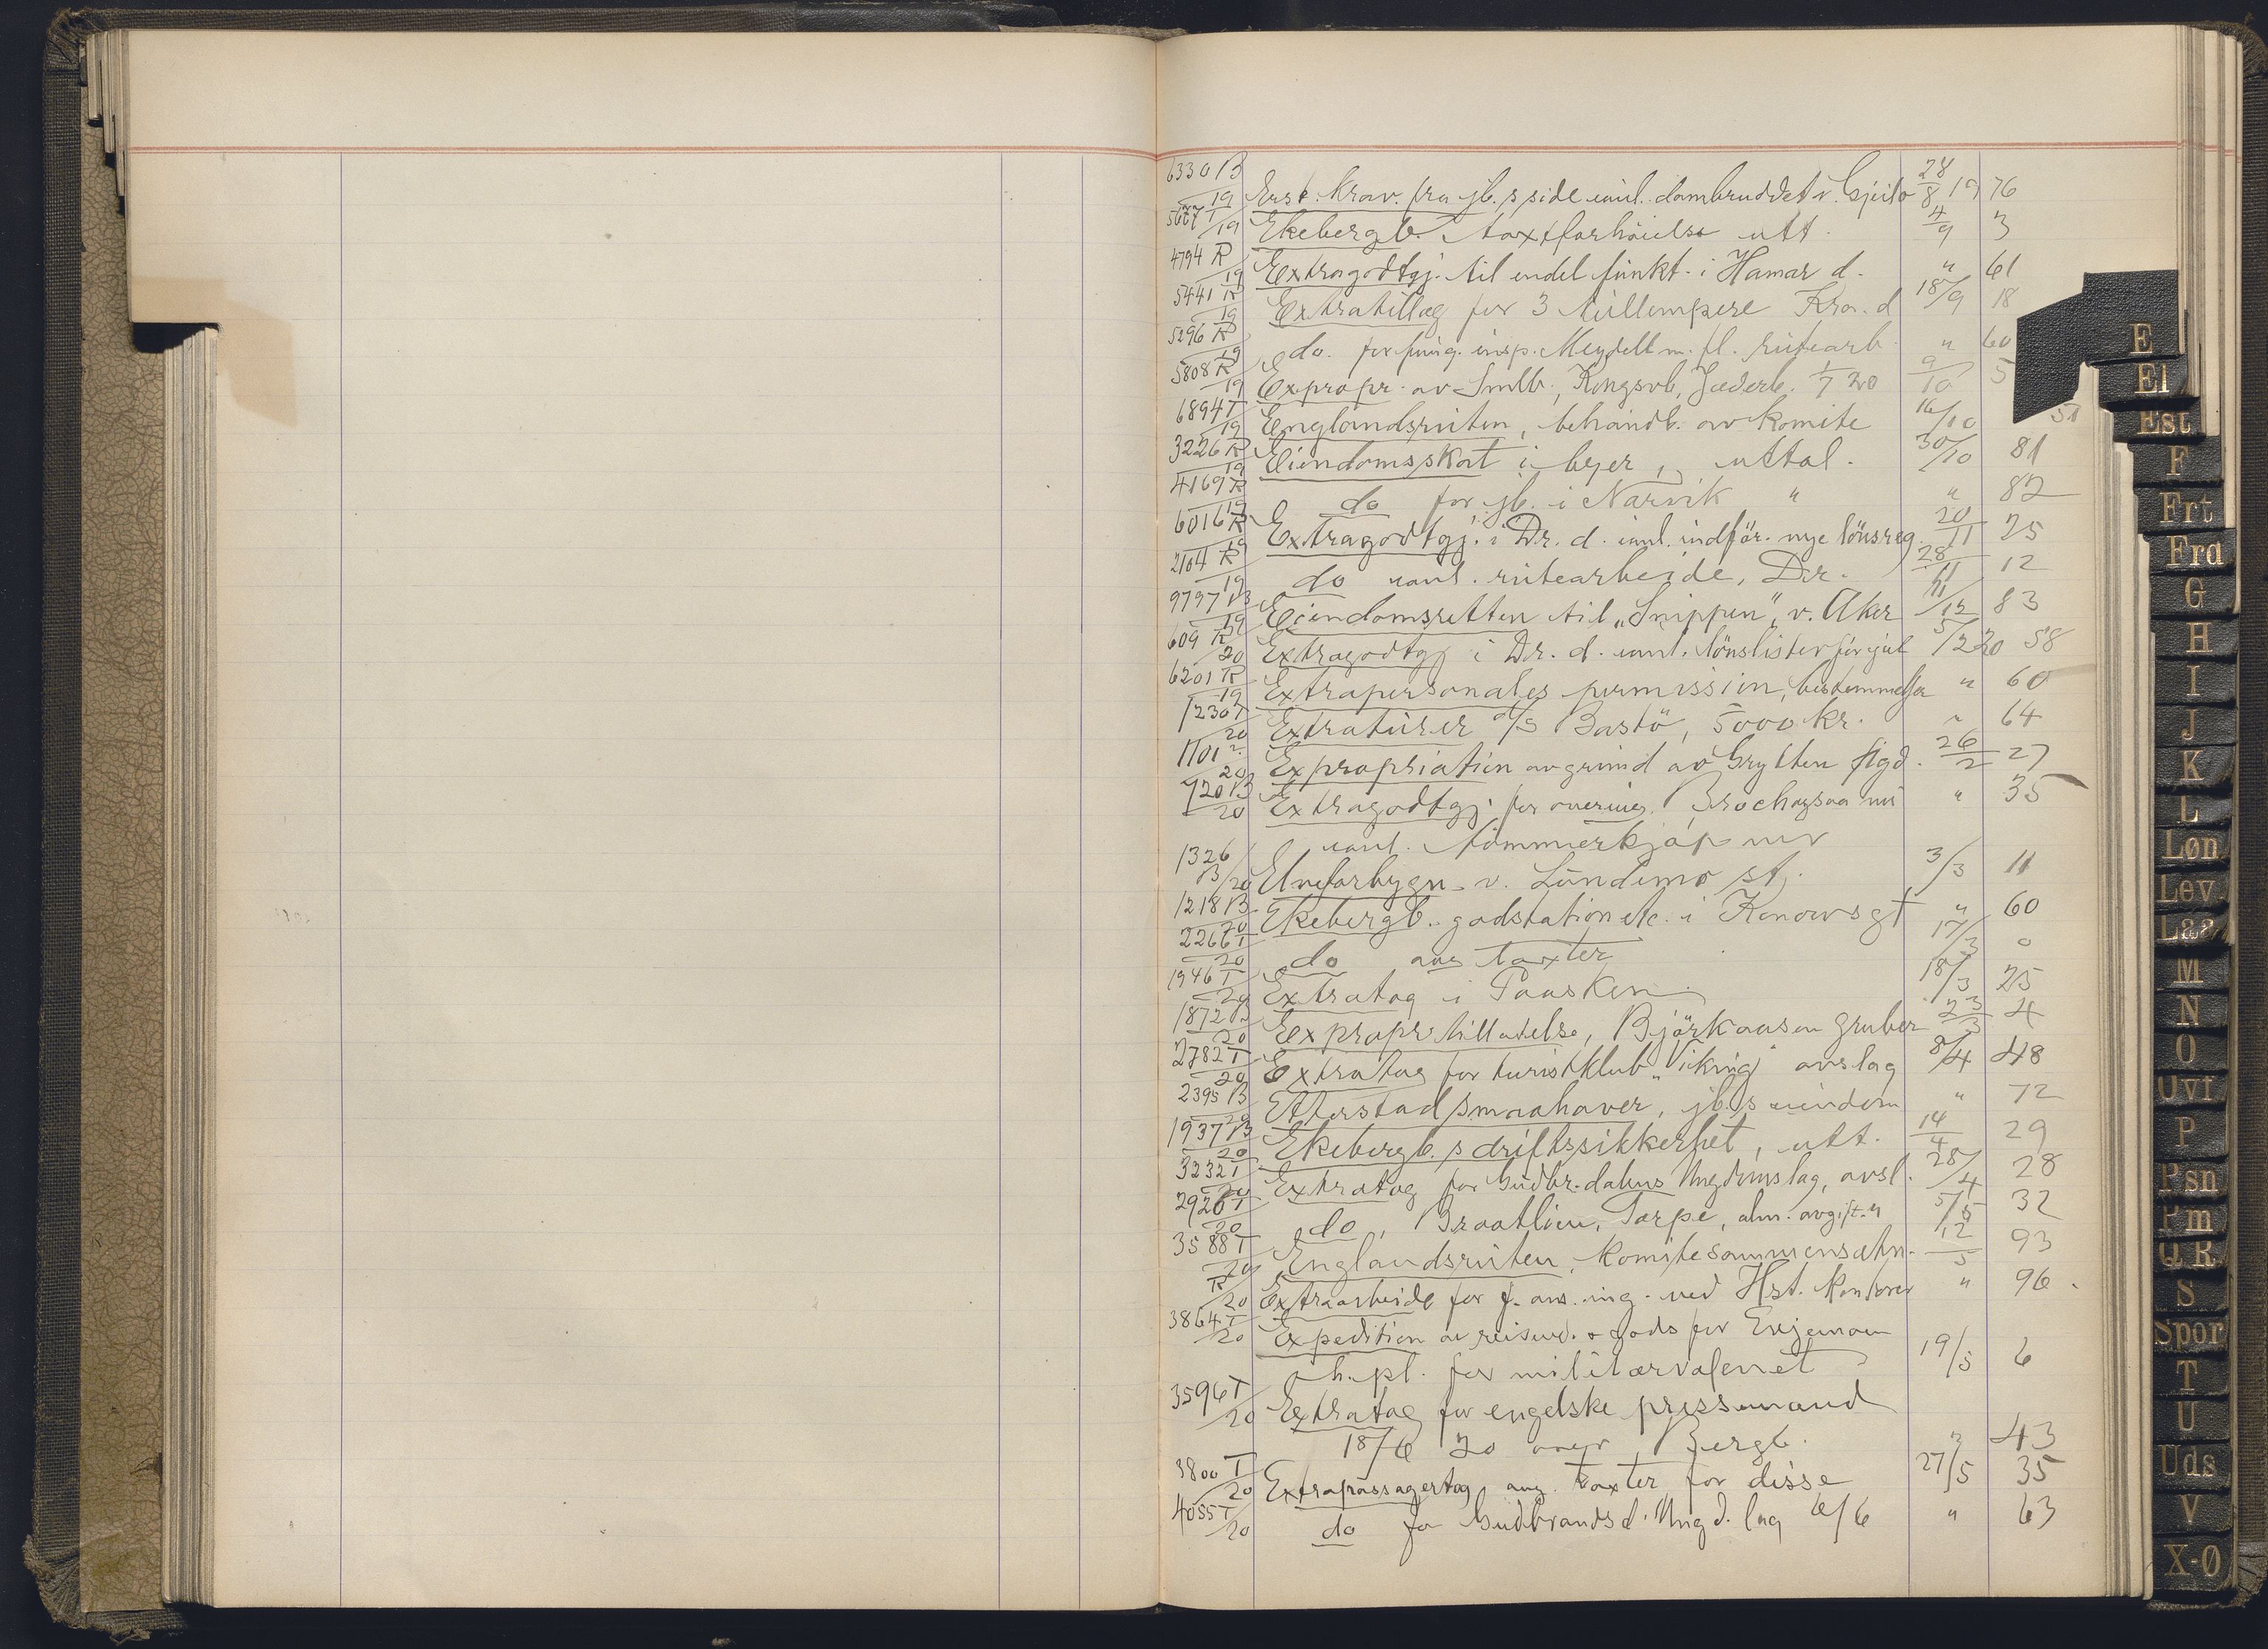 6330 B/19 Erst. krav. fra jb.s side anl. dambruddet v. 28/8 19 76
5667 T/19 Ekebergb. taxtforhöielse utt. 4/9 3
4794 R/19 Extragodtgj. til endel funkt. i Hamar d. " 61
5441 R/19 Extratillæg for 3 Kra. d 18/9 18
5296 R/19 do. for insp. Meydell m. fl. rutearb. " 60
5808 R/19 Expropr. av Smlb., Kongsvb, Jæderb. 1/7 20 9/10 5
6894 T/19 Englandsruten, behandl. av komite 16/10 51
3226 R/19 Eiendomsskat i byer, uttal. 30/10 81
4169 R/19 do for jb. i Narvik " " 82
6016 R/19 Extragodtgj. i Dr. d. anl. indför. nye lönsreg. 20/11 25
2104 R/19 do anl. rutearbeide, Dr. 28/11 12
9797 B/19 Eiendomsretten til „Snippen" v. Aker 11/12 83
609 R/20 Extragodtgj i Dr. d. anl. lönslister för jul 5/2 20 58
6201 R/19 Extrapersonales permission, bestemmelser " 60
1230 T/20 Extraturer d/s Bastö, 5000 kr. " 64
1101 /20 Expropriation av grund av Grytten 26/2 27
720 B/20 Extragodtgj for overing. " 35
anl. tömmerkjöp mv
1326 B/20 Elveforbygn. v. Lundemo st. 3/3 11
1218 B/20 Ekebergb. godsstation etc. i Konowsgt " 60
2266 T/20 do ang taxter 17/3 0
1946 T/20 Extratog i Paasken 18/3 25
1872 B/20 Expropr. tilladelse, Björkaasen gruber 23/3 4
2782 T/20 Extratog for turistklub „Viking" avslag 8/4 48
2395 B/20 Etterstad smaahaver, jb.s eiendom " 72
1937 B/20 Ekebergb.s driftssikkerhet, utt. 14/4 29
3232 T/20 Extratog for Gudbr.dalens Ungdomslag, avsl. 28/4 28
2926 T/20 do, Braatlien, Torpe, alm. avgift. 5/5 32
3588 T/20 Englandsruten, komitesammensætn. 12/5 93
R/20 Extraarbeide for f. ans. ing. ved Hst. kontorer " 96
3864 T/20 Expedition av reisend. o gods for Evjemoen
h.pl. for militærvæsenet 19/5 6
3596 T/20 Extratog for engelske pressemænd
18/6 20 over Bergb. " 43
3800 T/20 Extrapassagertog ang. taxter for disse 27/5 35
4055 T/20 do for Gudbrandsd. Ungd. lag 6/6 " 63
E
El
Est
F
Frt
Frd
G
H
I
J
K
L
Løn
Lev
Laa
M
N
O
Ovf
P
Psn
Pm
Q R
S
Spor
T
U
Uds
V
X-Ø